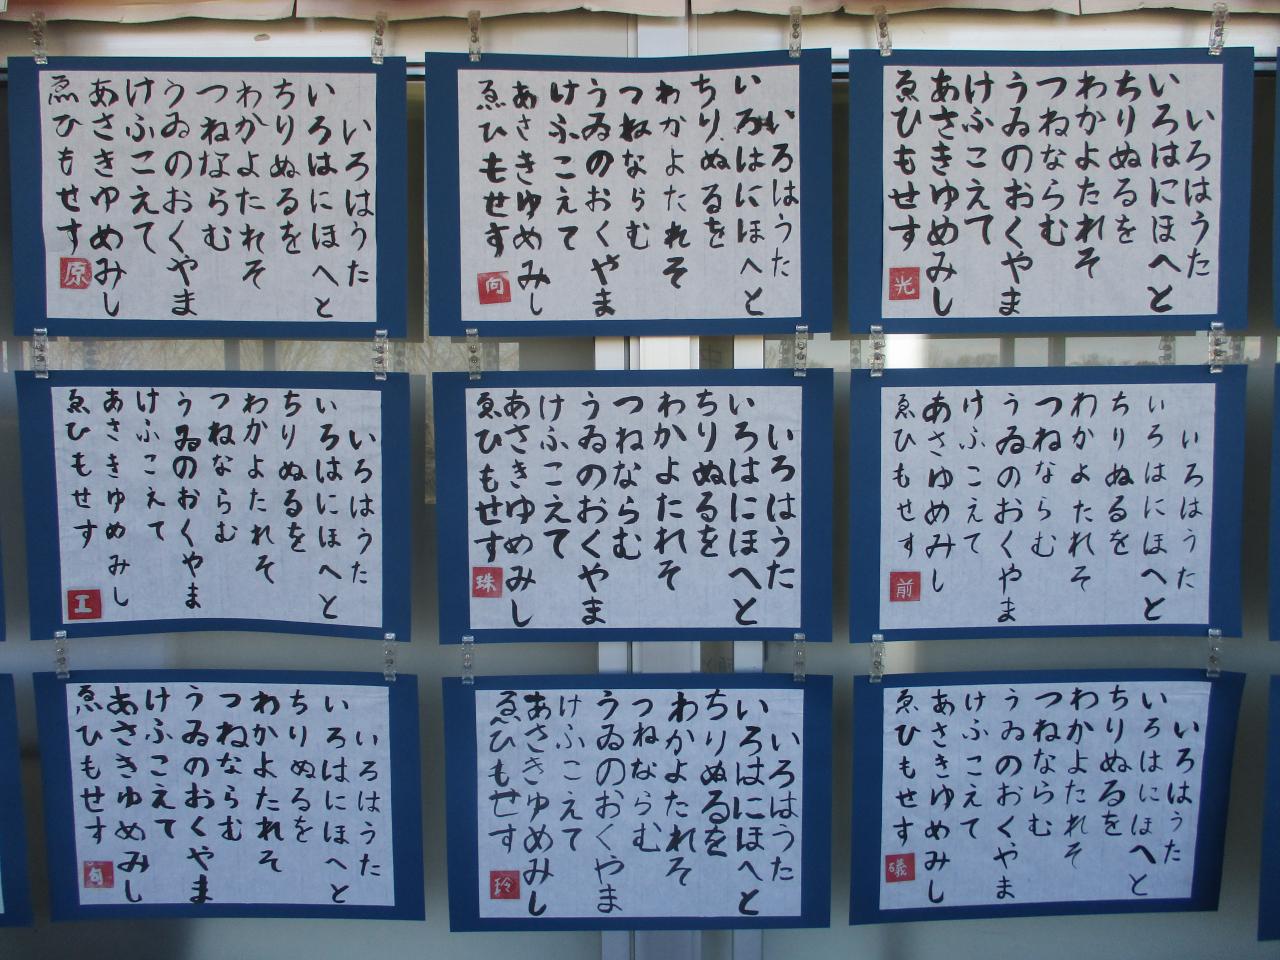 いろはうた
いろはにほへと
ちりぬるを
わかよたれそ
つねならむ
うゐのおくやま
けふこえて
あさきゆめみし
ゑひもせす
光
いろはうた
いろはにほへと
ちりぬるを
わかよたれそ
つねならむ
うゐのおくやま
けふこえて
あさきゆめみし
ゑひもせす
向
いろはうた
いろはにほへと
ちりぬるを
わかよたれそ
つねならむ
うゐのおくやま
けふこえて
あさきゆめみし
ゑひもせす
原
いろはうた
いろはにほへと
ちりぬるを
わかよたれそ
つねならむ
うゐのおくやま
けふこえて
あさゆめみし
ゑひもせす
前
いろはうた
いろはにほへと
ちりぬるを
わかよたれそ
つねならむ
うゐのおくやま
けふこえて
あさきゆめみし
ゑひもせす
珠
いろはうた
いろはにほへと
ちりぬるを
わかよたれそ
つねならむ
うゐのおくやま
けふこえて
あさきゆめみし
ゑひもせす
工
いろはうた
いろはにほへと
ちりぬるを
わかよたれそ
つねならむ
うゐのおくやま
けふこえて
あさきゆめみし
ゑひもせす
礒
いろはうた
いろはにほへと
ちりぬるを
わかよたれそ
つねならむ
うゐのおくやま
けふこえて
あさきゆめみし
ゑひもせす
玲
いろはうた
いろはにほへと
ちりぬるを
わかよたれそ
つねならむ
うゐのおくやま
けふこえて
あさきゆめみし
ゑひもせす
旬